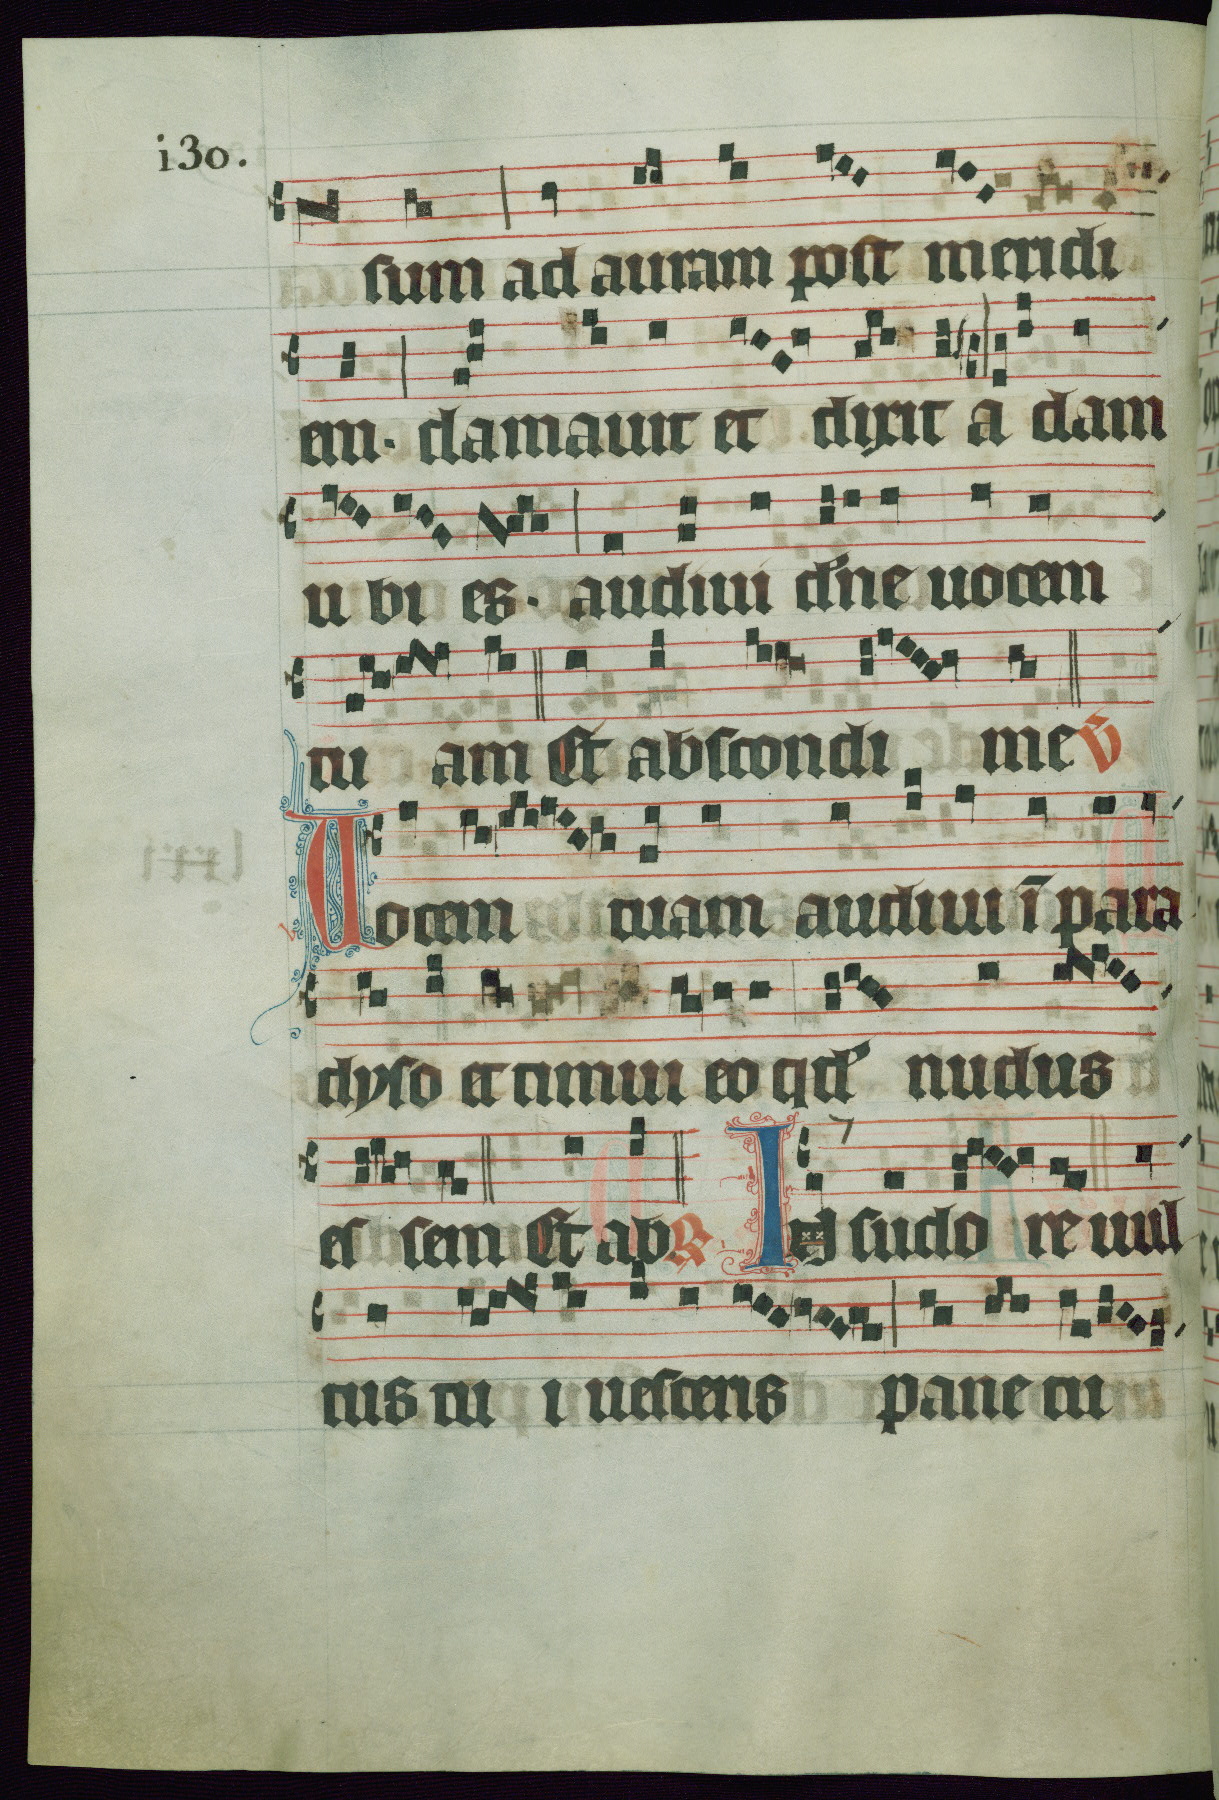 i30.
sum ad auram post meridi
em. clamauit et dixit a dam
u bi es. audiui dn̄e uocem
tu am Et abscondi me V
Uocem tuam audiui ī para
dyso et timui eo qd̄ nudus
es sem Et ab R. In sudo re uul
tus tu i uesceris pane tu